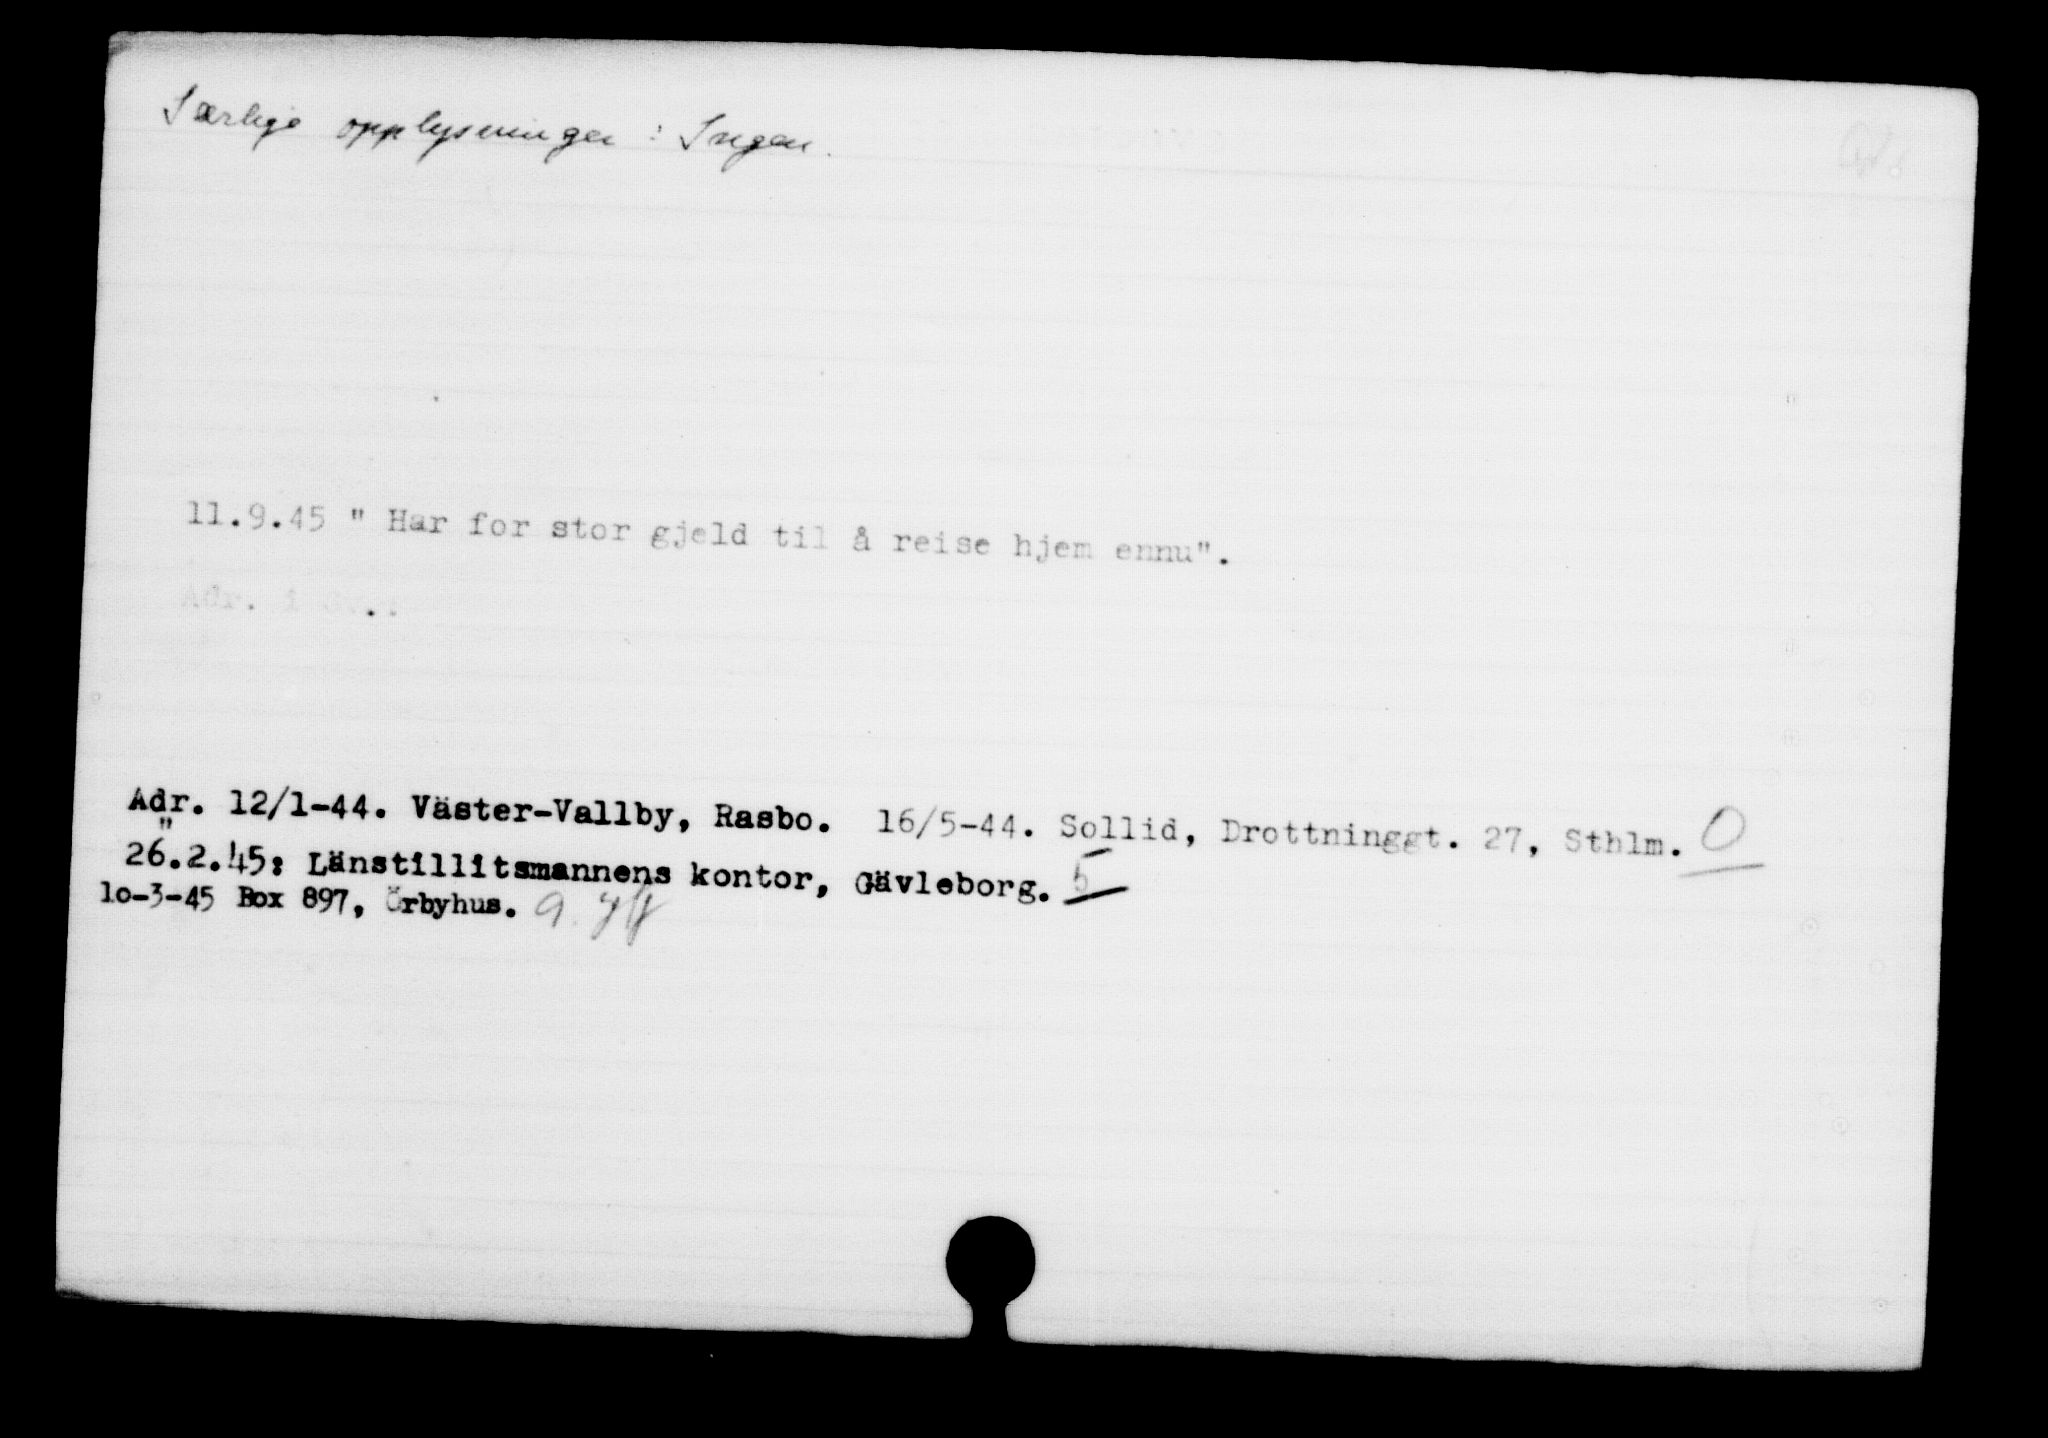 Særlige opplysninger : Ingen.
11.9.45 " Har for stor gjeld til å reise hjem ennu".
Adr. i
Adr. 12/1-44. Väster-Vallby, Rasbo. 16/5-44. Sollid, Drottninggt. 27, Sthlm. O
"
26.2.45: Länstillitsmannens kontor, Gävleborg. 5
lo-3-45 Box 897, Örbyhus.